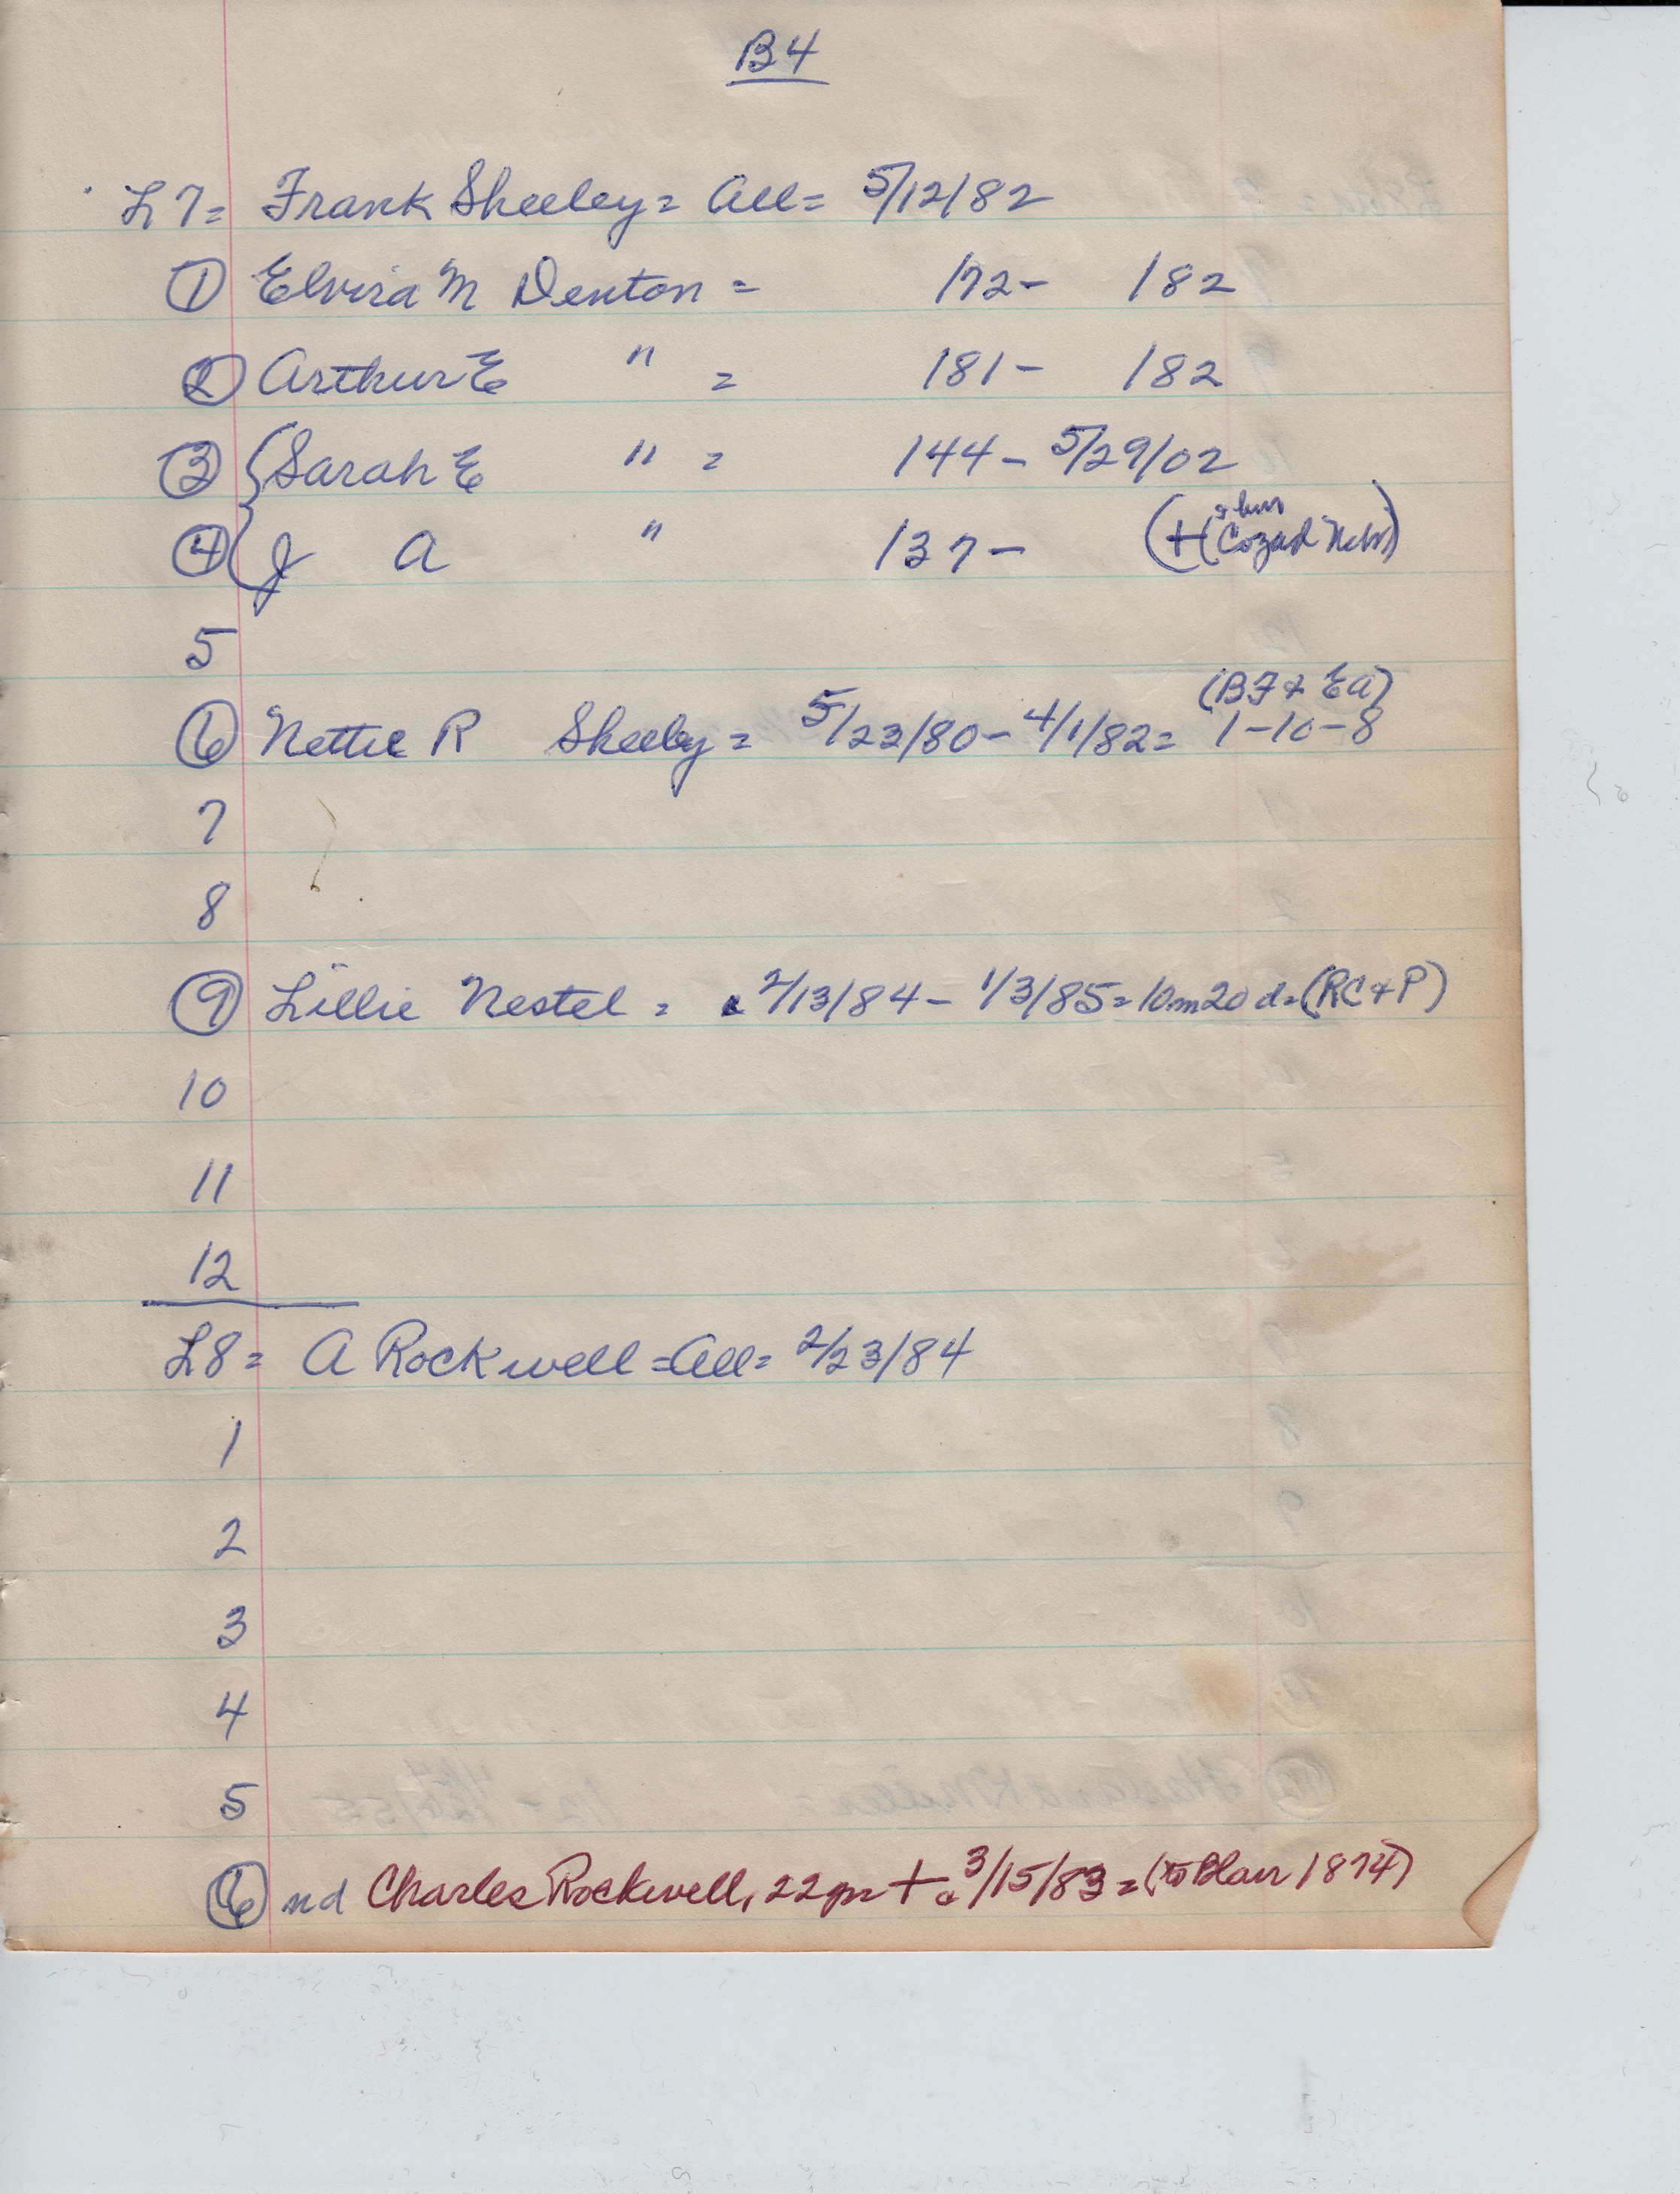 B4
L7= Frank Sheeley= All= 5/12/82
1 Elvira M Denton = 172- 182
2 Arthur E " = 181- 182
3 {Sarah E " = 144- 5/29/02
4 {J A " 137- (+(Cozad Nebr)
5
6 Nettie R Sheeley= 5/23/80-4/1/82= 1-10-8 (BF & EA)
7
8
9 Lillie Nestel = 2/13/84- 1/3/85=10m20d=(RC&P)
10
11
12
L8= A Rockwell=All= 2/23/84
1
2
3
4
5
6 nd Charles Rockwell, 22yr + a 3/15/83=(to Blair 1874)